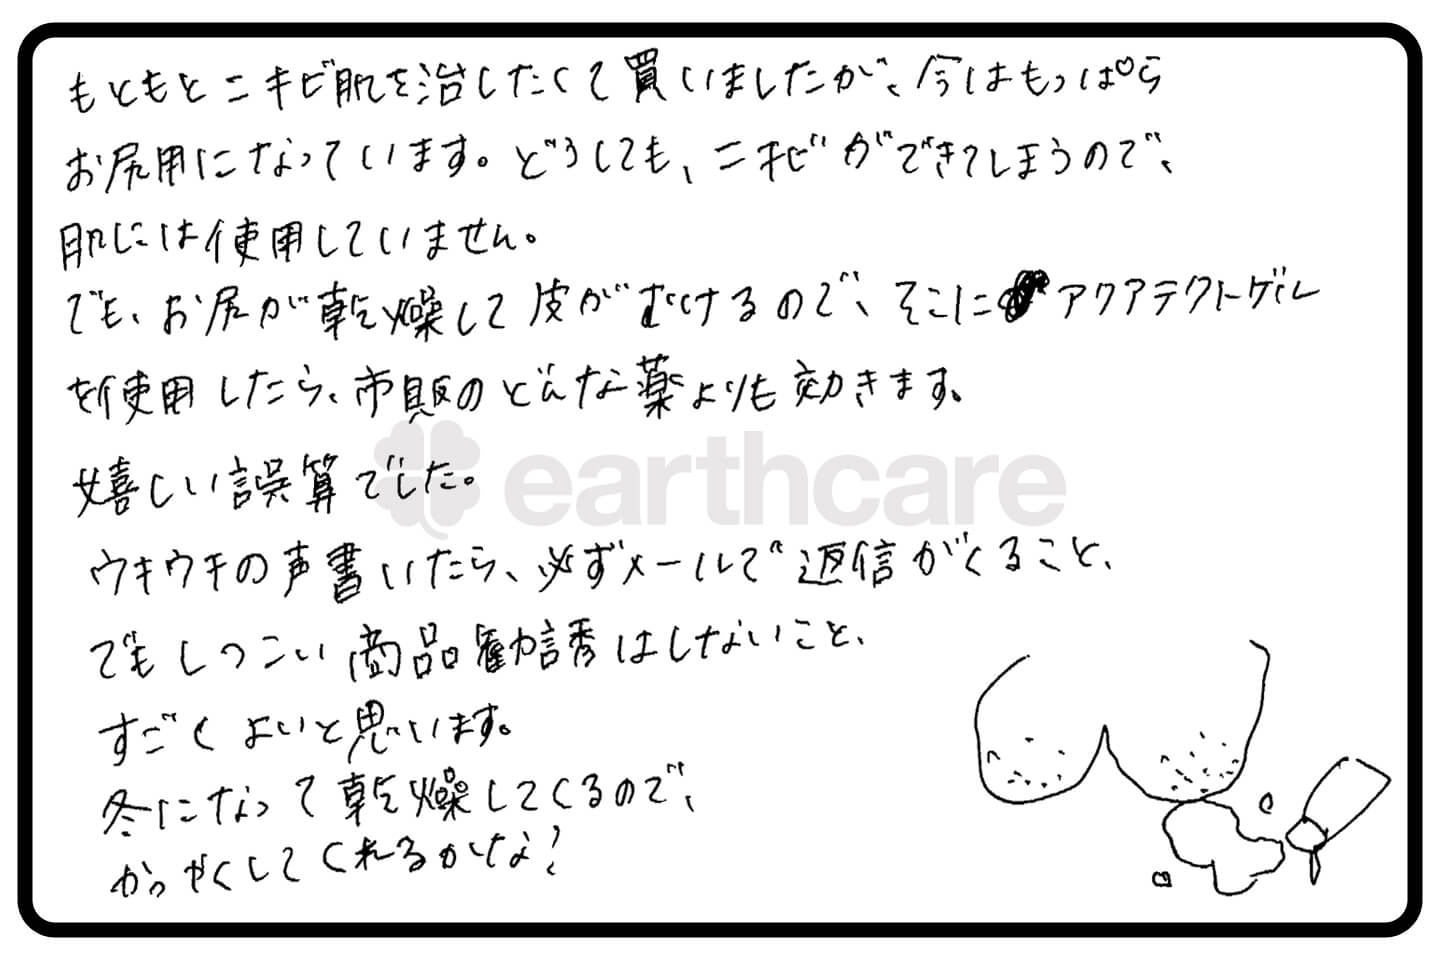 もともとニキビ肌を治したくて買いましたが、今はもっぱら
お尻用になっています。どうしても、ニキビができてしまうので、
肌には使用していません。
でも、お尻が乾燥して皮がむけるので、そこにアクアテクトゲル
を使用したら、市販のどんな薬よりも効きます。
嬉しい誤算でした。
earthcare
ウキウキの声書いたら、必ずメールで返信がくること、
でもしつこい商品勧誘はしないこと、
すごくよいと思います。
冬になって乾燥してくるので、
かつやくしてくれるかな?